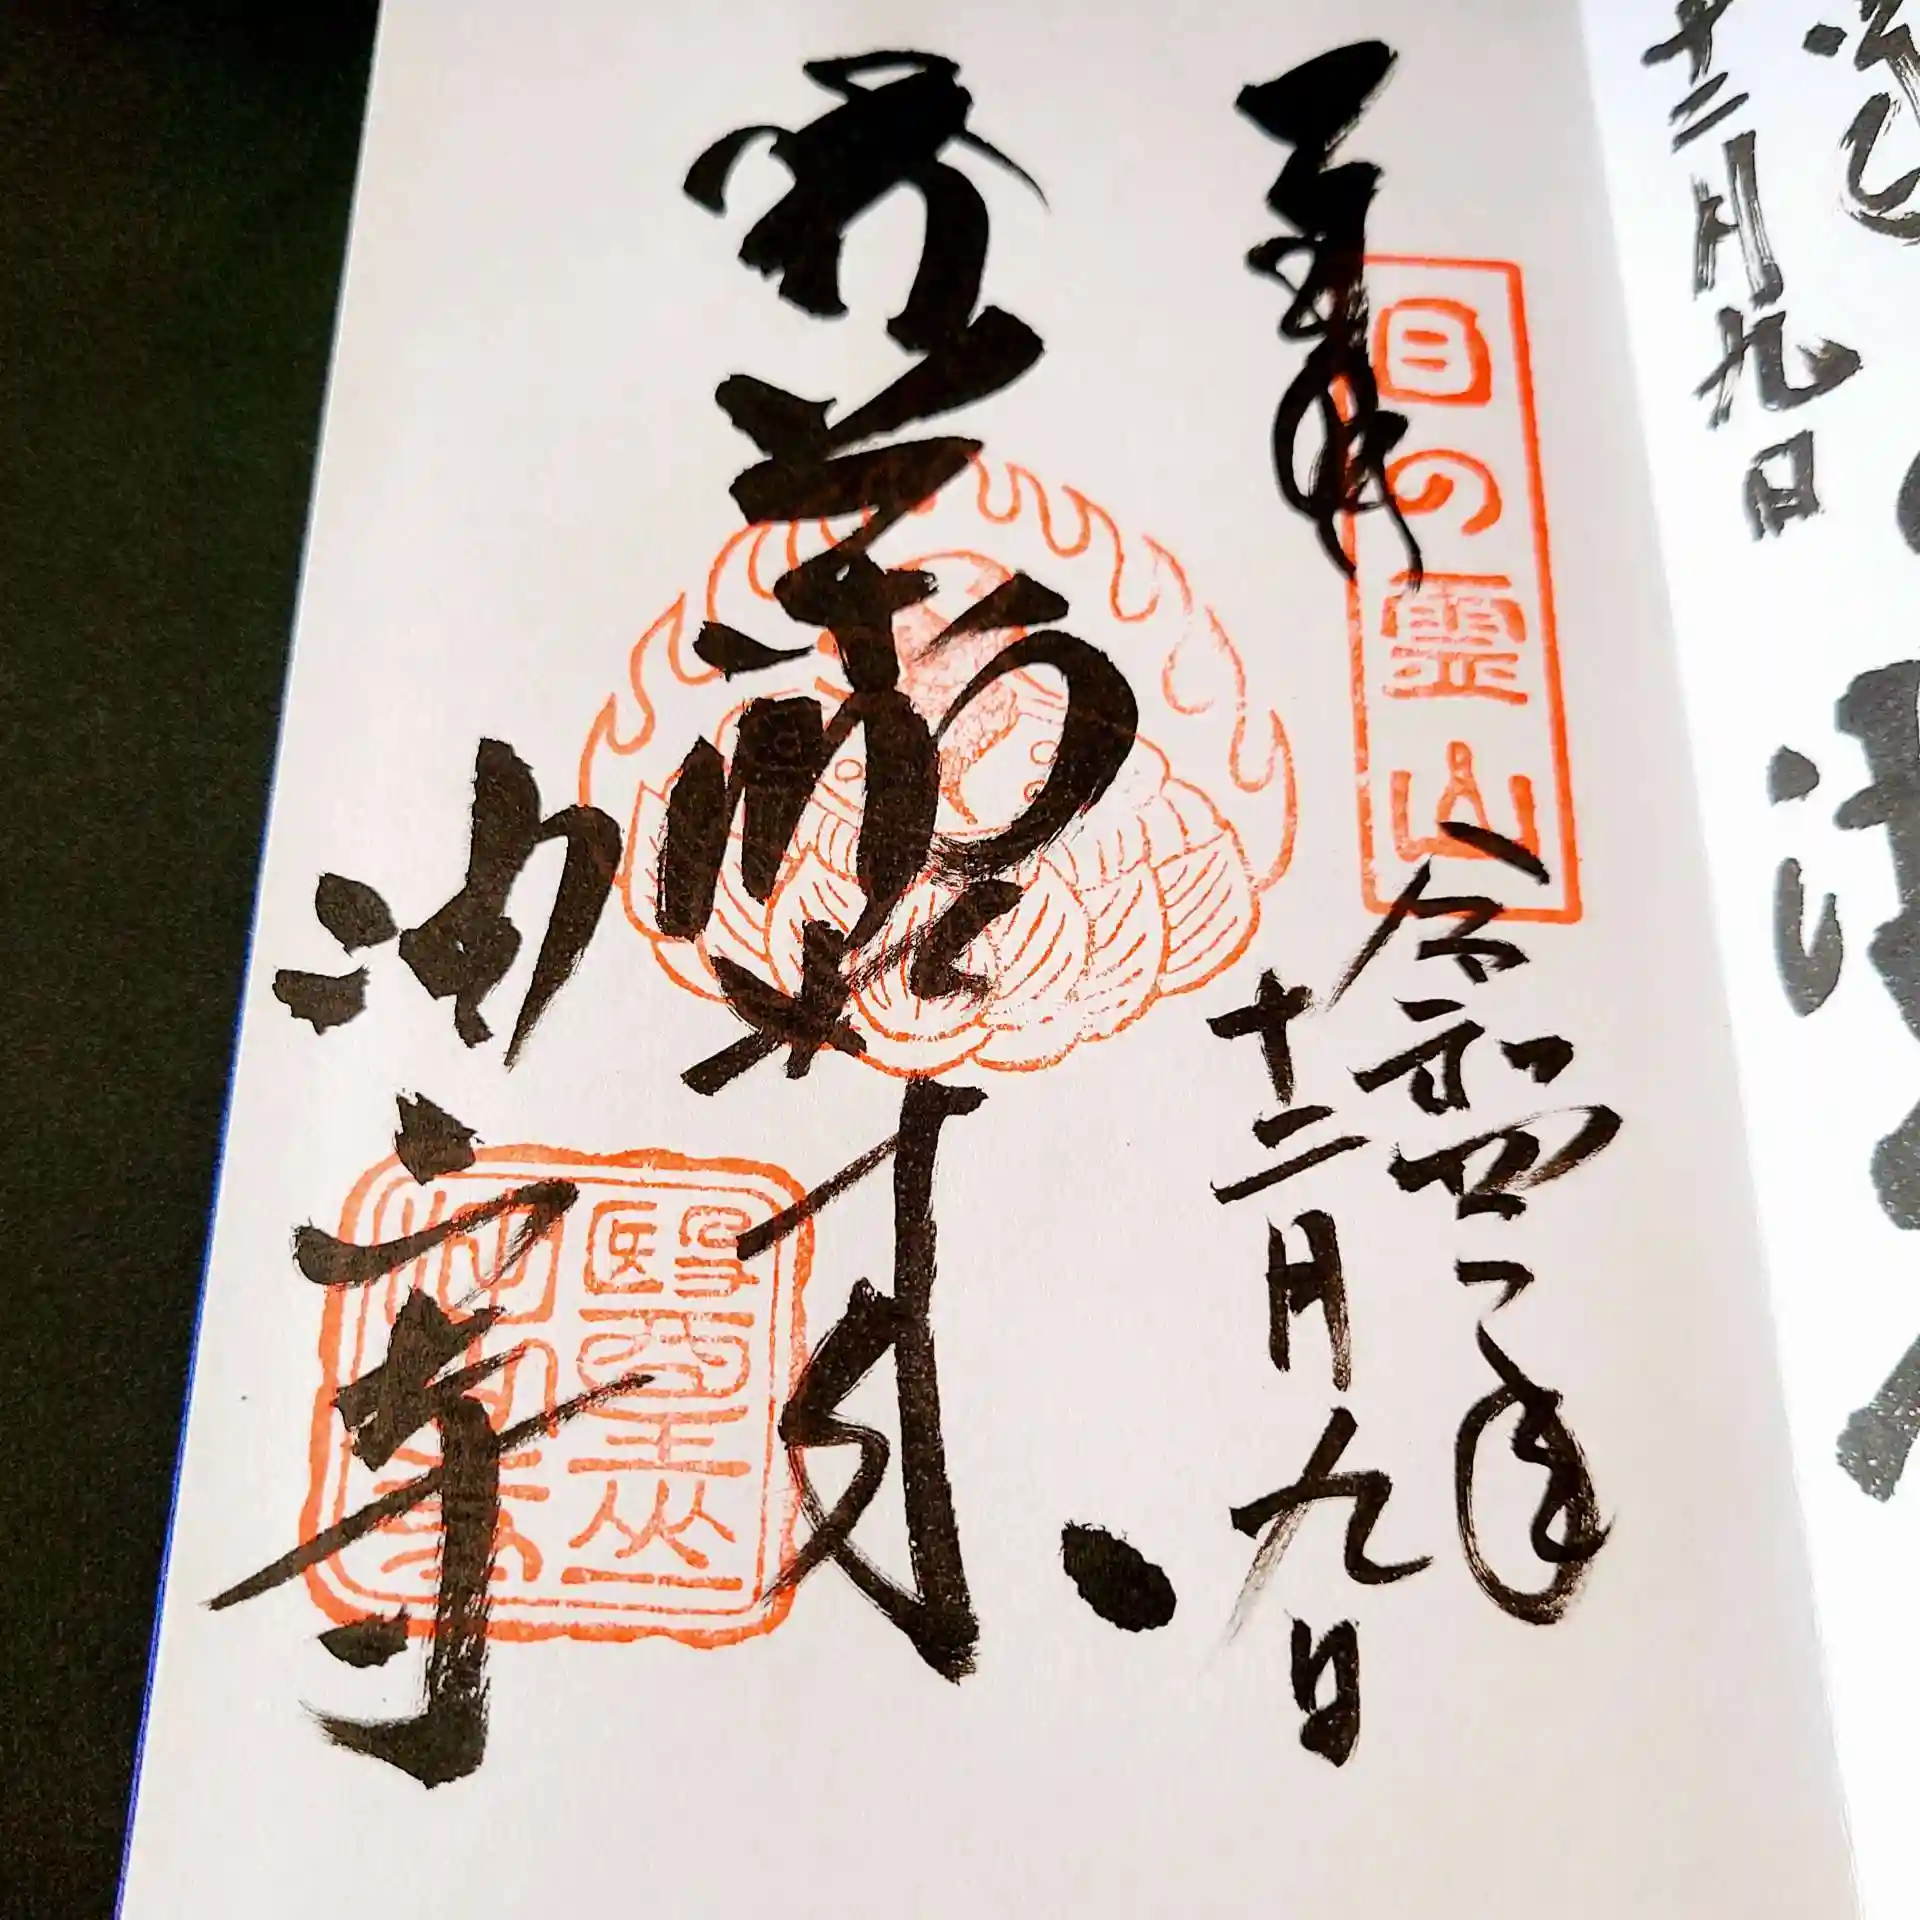 十二月九日
奉拝
目の霊山
令和四年
十二月九日
薬師如来
油山寺
醫王山
油山寺